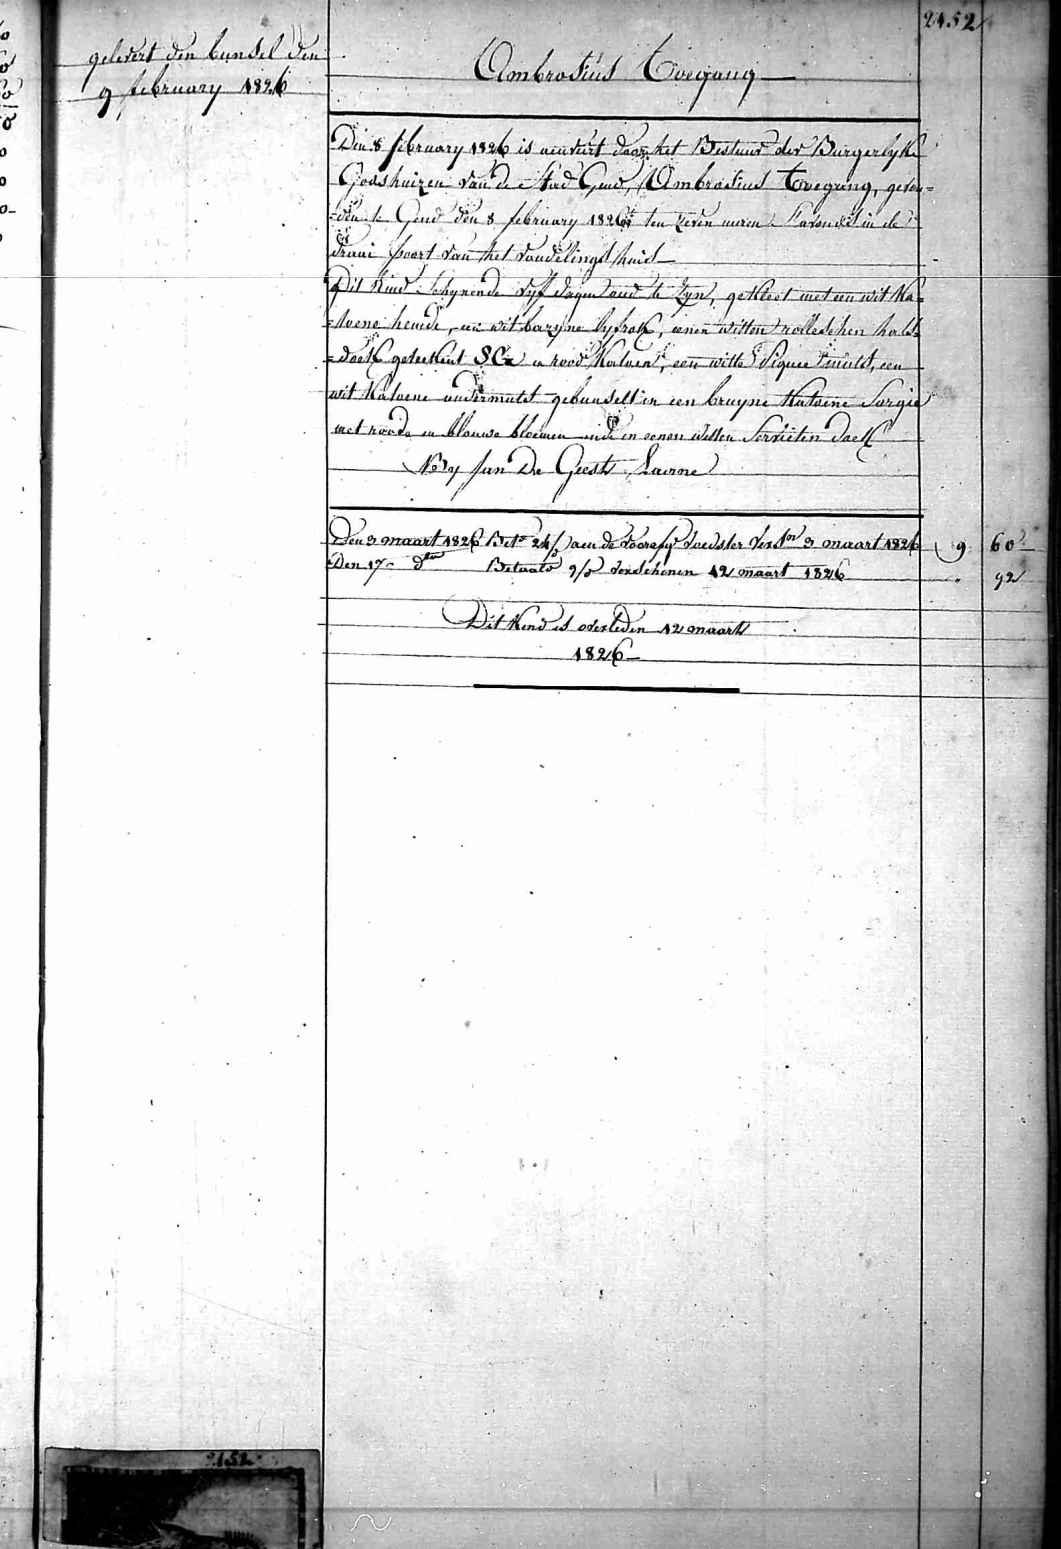 2152
gelevert den bunsel den
9 february 1826
Ambrosius Toegang
Den 8 february 1826 is aenveirt door het Bestuur der Burgerlyke
Godshuizen van de Stad Gend, Ambrosius Toegang, gevon=
=den te Gend den 8 february 1826 ten zeven uren s'avonds in de
draai poort van het vondelings huis
Dit Kind schynende vyf dagen oud te zyn, gekleet met een wit Ka=
=toene hemde, een wit bazyne lyfrok, eenen witten nolleschen hals=
=doek geteekent SC in rood Katoen, een witte Piquee muts, een
wit Katoene ondermuts gebunselt in een bruyne Katoene Sargie
met roode en blauwe bloemen ende in eenen witten Servieten doek
Jan De Geest Laerne
Den 3 maart 1826 Bet. 24/ aen de voorsz. voedster vers. 3 maart 1826 9 60
Den 17 dto Betaald 9/ verschenen 12 maart 1826 " 92
Dit Kind is overleden 12 maart
1826
2152